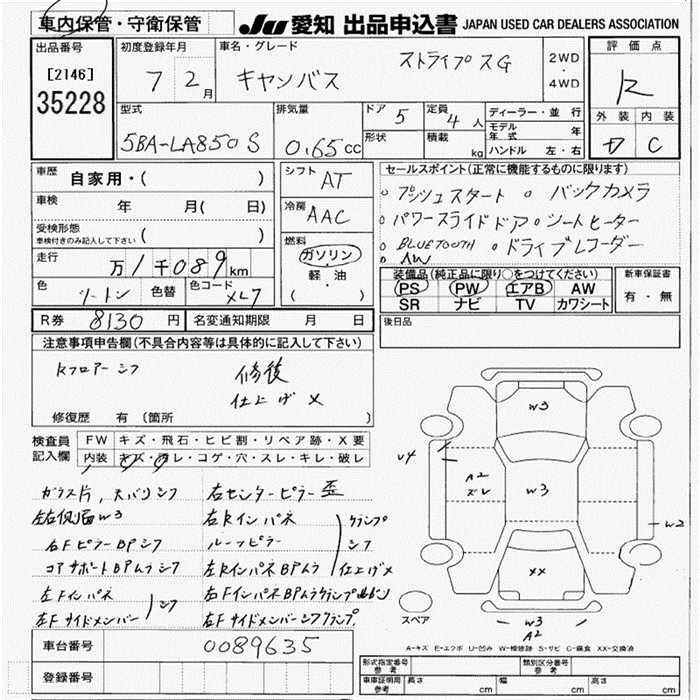 車内保管・守衛保管
JU 愛知 出品申込書 JAPAN USED CAR DEALERS ASSOCIATION
出品番号
[2146]
35228
初度登録年月
7 2月
車名・グレード
キャンバス ストライプスG
2WD
・
4WD
評価点
R
外装 内装
C
型式
5BA-LA850S
排気量
0.65cc
ドア 5
形状
定員 4人
積載 kg
ディーラー・並行
モデル年式 年
ハンドル 左・右
車歴
自家用・( )
車検 年 月( 日)
受検形態
車検付きのみ記入して下さい ( )
走行
万1千089km
色 ツートン 色替 色コード XL7
シフト AT
冷房 AAC
燃料
ガソリン
軽油
( )
セールスポイント(正常に機能するものに限ります)
○プッシュスタート ○バックカメラ
○パワースライドドア○シートヒーター
○BLUETOOTH ○ドライブレコーダー
○AW
装備品(純正品に限り○をつけてください)
PS PW エアB AW
SR ナビ TV カワシート
新車保証書
有・無
R券 8130円 名変通知期限 月 日
後日品
注意事項申告欄(不具合内容等は具体的に記入して下さい)
Kフロアーシフ 修後
仕上げ×
修復歴 有(箇所 )
検査員
記入欄
FW キズ・飛石・ヒビ割・リペア跡・X要
内装 キズ・汚レ・コゲ・穴・スレ・キレ・破レ
ガラス片,スバリシフ 右センターピラー歪
左右側面W3 右Rインパネ
右FピラーBPシフ ルーフピラー
コアサポートBPムラシフ 左RインパネBPムラ
クランプ
シフ
仕上げ×
左Fインパネ
左Fサイドメンバー
シフ
右FインパネBPムラクランプ
右FサイドメンバーシフクランプA
W3
U4
A2
ズレ
W3
W2
XX
スペア
W3
A2
A-キズ E-エクボ U-凹み W-補修跡 S-サビ C-腐食 XX-交換済
車台番号 0089635
登録番号
形式指定番号
参考
類別区分番号
参考
車車証明用
参考
長さ cm 幅 cm 高さ cm